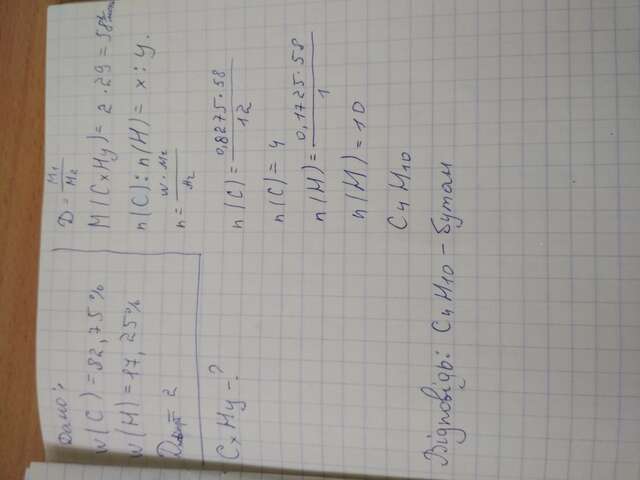 Дано:
W(C) = 82,75%
W(H) = 17,25%
Dпов = 2
CxHy - ?
D = M1/M2
M(CxHy) = 2 · 29 = 58 г/моль
n(C) : n(H) = x : y.
n = W · M2/M2
n(C) = 0,8275·58/12
n(C) = 4
n(H) = 0,1725·58/1
n(H) = 10
C4H10
Відповідь: C4H10 - бутан